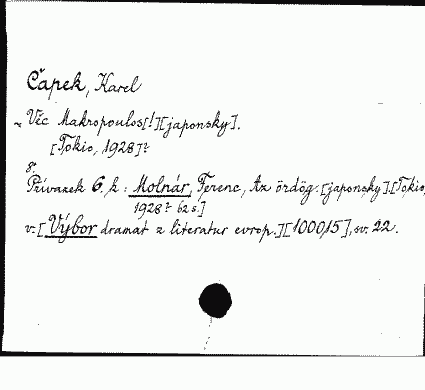 Čapek, Karel
Věc Makropoulos[!][japonsky].
[Tokio, 1928]?
8.
Přívazek 6. k: Molnár, Ferenc, Az ördög. [japonsky]. [Tokio,
1928? 62 s.]
v: [Výbor dramat z literatur evrop.][100015], sv. 22.